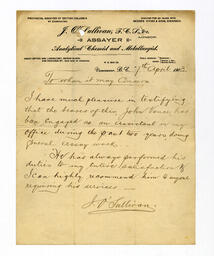 PROVINCIAL ASSAYER OF BRITISH COLUMBIA
BY EXAMINATION
J. O'Sullivan, F.C.S.,
LONDON.
ASSAYER
Analytical Chemist and Metallurgist.
Vancouver, B.C. 7th April
To whom it may Concern
I have much pleasure in testifying
that the bearer of this, John
has been engaged as an assistant in my
office during the past two years doing
general assay work.
He has always performed his
duties to my entire satisfaction &
I can highly recommend him to anyone
requiring his services —
J. O'Sullivan.